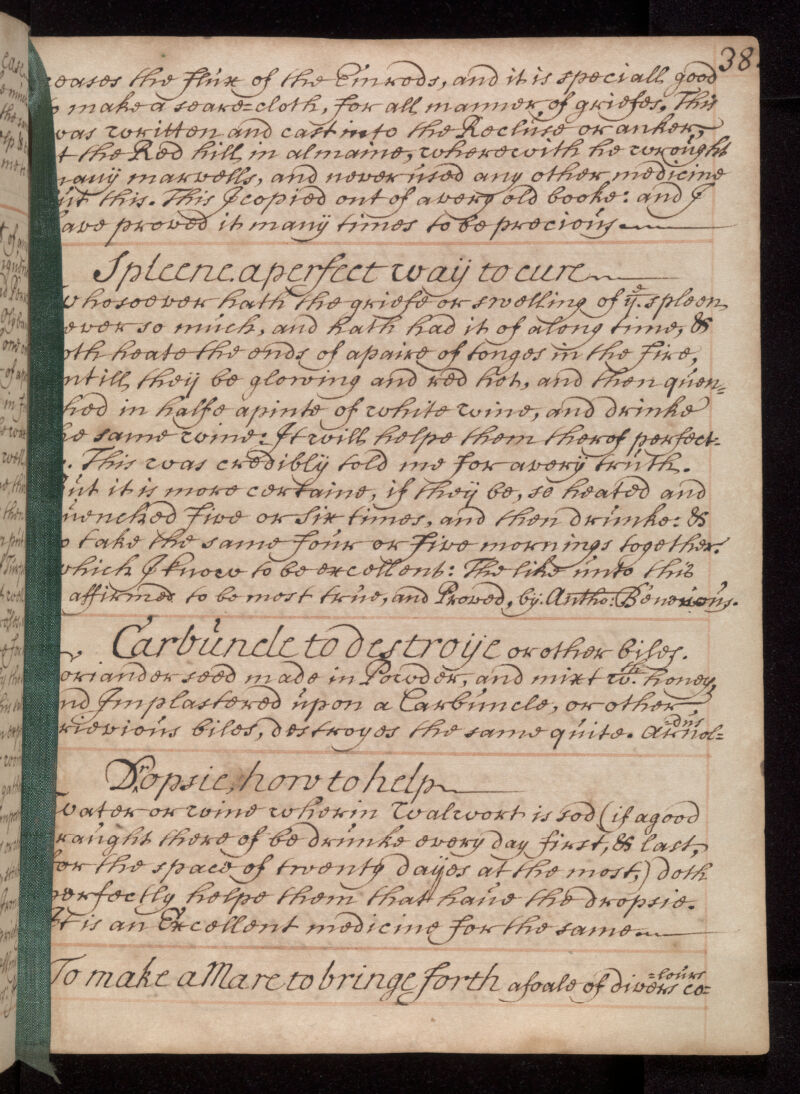 38.
ceases the flux of the Emrods, and it is speciall good
to make a seare=cloth, for all manner of griefes. This
was written and cast into the Recluse or anker,
at the Red hill, in almaine, wherewith he wrought
many marvells, and never used any other medicine
but this. This I copied out of a very old booke: and I
have proved it many times to be precious
Spleene. a perfect way to cure
Whosoever hath the griefe or swelling of yͤ. spleen
ever so much, and hath had it of a long time, &
oth heate the ends of a paire of tonges in the fire,
ntill they be glowing and red hot, and then quen=
hed in halfe a pinte of white wine, and drinke
he same wine: It will helpe them therof perfect=
. This was credibly told me for a very truth.
But it is more certaine, if they be, so heated and
uenched five or six times, and then drunke: &
o take the same four or five mornings together.
which I know to be excellent: The like unto this
affirmed to be most true, and Proved, by. Antho: Benevous.
Carbuncle to destroye or other biles.
Coriander seed made in Powder, and mixt wth. honey,
nd Implastered upon a Carbuncle, or other
rievious biles, destroyes the same quite. Arnol=
dus
Dropsie, how to help
Water or wine wherin Walwort is sod (if a good
raught there of be drunke every day first, & last,
for the space of twenty dayes at the most,) doth
perfectly helpe them that haue the dropsie.
It is an Excellent medicine for the same
To make a Mare to bringe forth a foale of divers co=
=lours